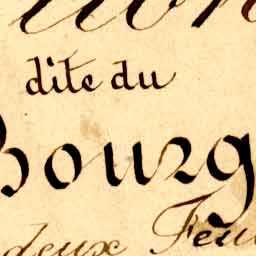 dite du
Bourg
deux Feu